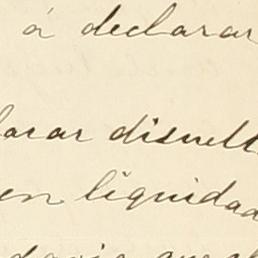 á declarar
larar disuelt
en liquidad